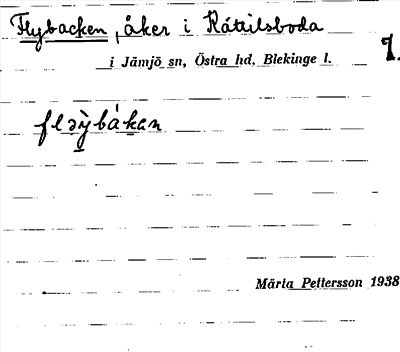 Flybacken, åker i Kättilsboda
1.
i Jämjö sn, Östra hd, Blekinge l.
fløỳbákan
Märta Pettersson 1938